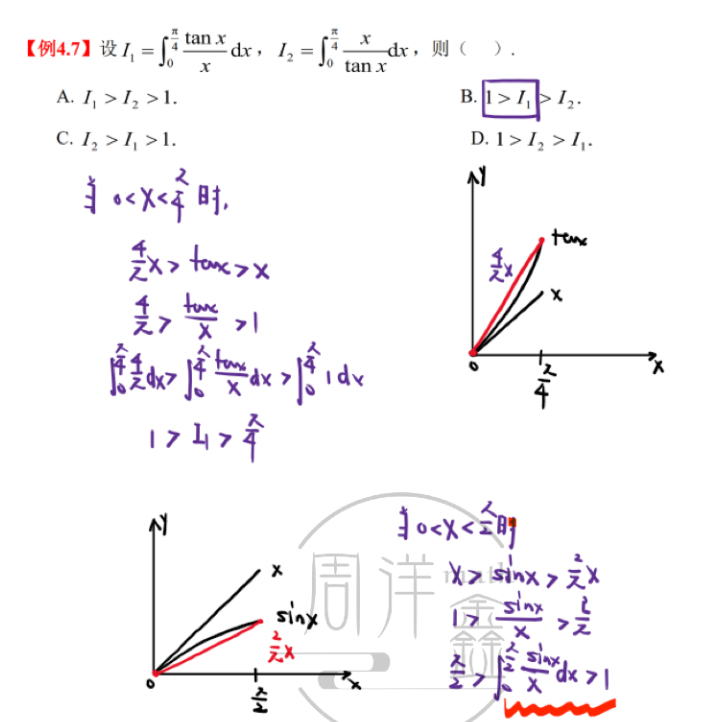 【例4.7】设 I₁ = ∫₀^(π/4) (tan x)/x dx, I₂ = ∫₀^(π/4) x/(tan x) dx, 则( ).
A. I₁ > I₂ > 1. B. 1 > I₁ > I₂.
C. I₂ > I₁ > 1. D. 1 > I₂ > I₁.
当 0<x<π/4 时,
4/π x > tanx > x
4/π > tanx/x > 1
∫₀^(π/4) 4/π dx > ∫₀^(π/4) tanx/x dx > ∫₀^(π/4) 1 dx
1 > I₁ > π/4
y
tanx
4/π x
x
0
π/4
x
y
x
sinx
2/π x
0
π/2
x
当 0<x<π/2 时
x > sinx > 2/π x
1 > sinx/x > 2/π
π/2 > ∫₀^(π/2) sinx/x dx > 1
周洋鑫